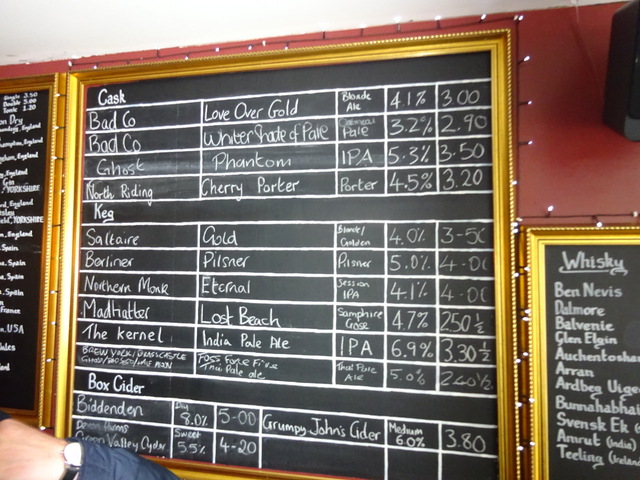 Single 3.50
Double 5.00
Tonic 1.30
Dry
England
England
England
England
Gin
YORKSHIRE
England
YORKSHIRE
England
Spain
Spain
Spain
Spain
France
USA
Cask
Bad Co Love Over Gold Blonde Ale 4.1% 3.00
Bad Co Whiter Shade of Pale Oatmeal Pale 3.2% 2.90
Ghost Phantom IPA 5.3% 3.50
North Riding Cherry Porter Porter 4.5% 3.20
Keg
Saltaire Gold Blonde/Golden 4.0% 3-50
Berliner Pilsner Pilsner 5.0% 4-00
Northern Monk Eternal Session IPA 4.1% 4-00
Madhatter Lost Beach Samphire Gose 4.7% 2.50 ½
The Kernel India Pale Ale IPA 6.9% 3.30 ½
BREW YORK/ Pale ale Ale 5.0% 2.40 ½
Box Cider
Biddenden Dry 8.0% 5-00 Grumpy John's Cider Medium 6.0% 3.80
Green Valley Cyder Sweet 5.5% 4-20
Whisky
Ben Nevis
Dalmore
Balvenie
Glen Elgin
Auchentoshan
Arran
Ardbeg Uige
Bunnahabha
Svensk Ek
Amrut (India)
Teeling (Ireland